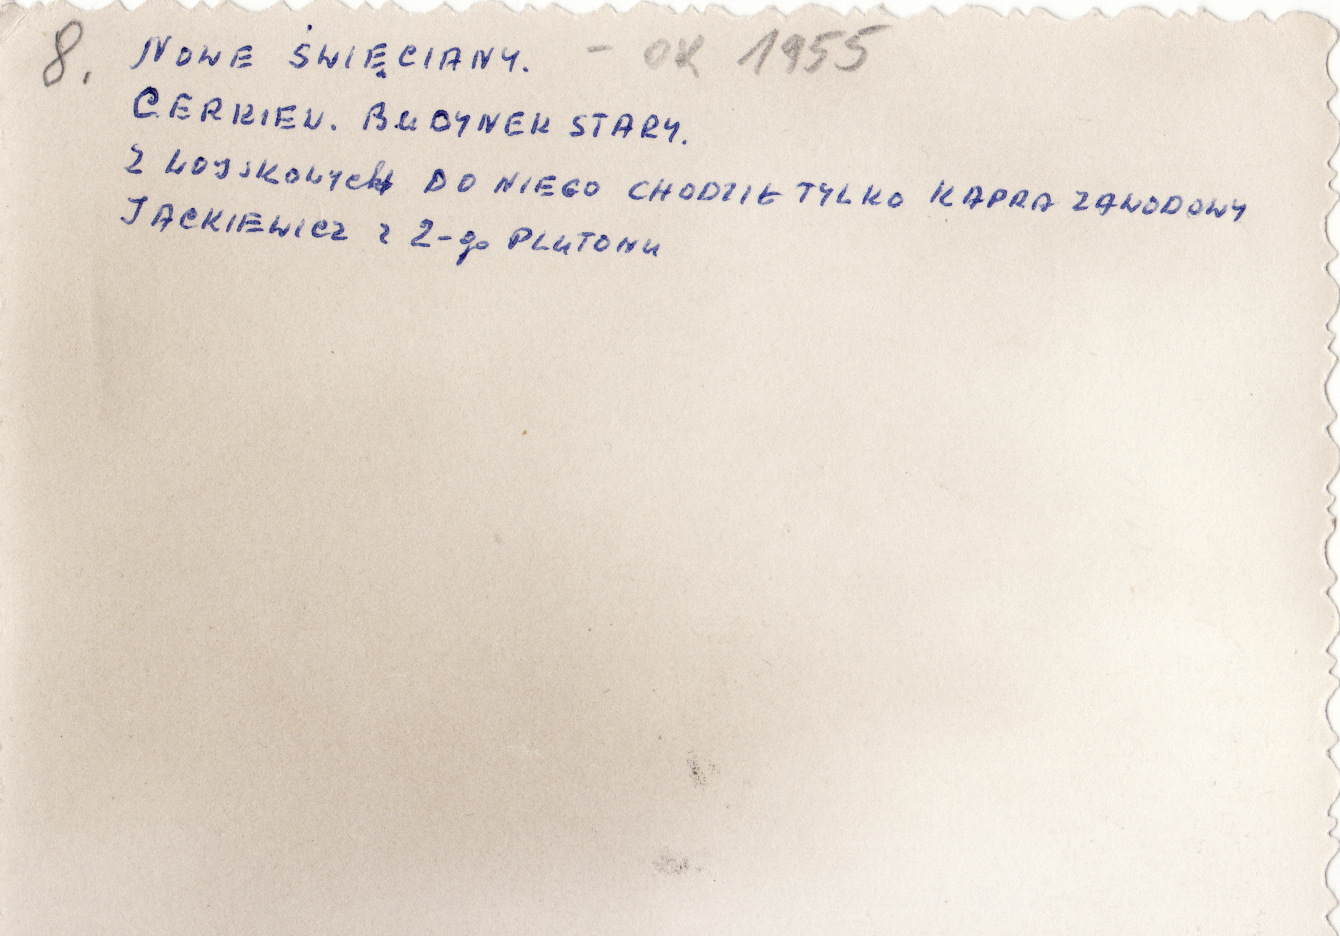 8. NOWE ŚWIĘCIANY. - OK 1955
CERKIEW. BUDYNEK STARY.
Z WOJSKOWYCH DO NIEGO CHODZIŁ TYLKO KAPRA ZAWODOWY
JACKIEWICZ Z 2-go PLUTONU